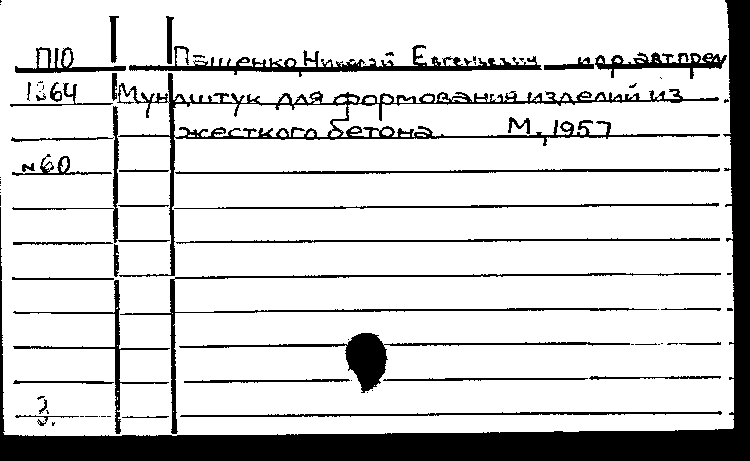 П10 Пащенко, Николай Евгеньевич
1364 Мундштук для формования изделий из
жесткого бетона. М., 1957
№60
3.